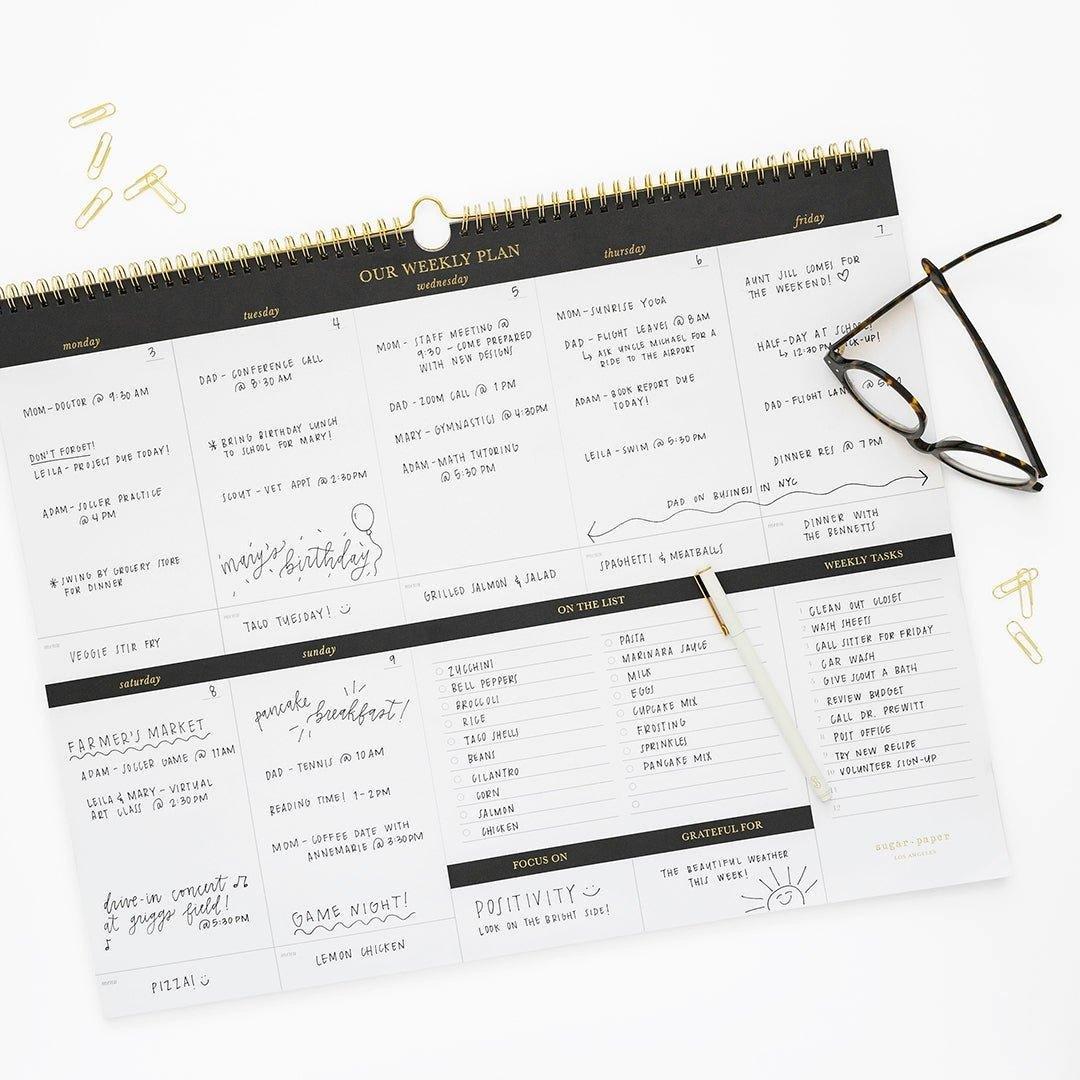 OUR WEEKLY PLAN
monday
3
MOM-DOCTOR @ 9:30 AM
DON'T FORGET!
LEILA-PROJECT DUE TODAY!
ADAM-SOCCER PRACTICE
@ 4 PM
* SWING BY GROCERY STORE
FOR DINNER
menu
VEGGIE STIR FRY
tuesday
4
DAD-CONFERENCE CALL
@ 8:30 AM
* BRING BIRTHDAY LUNCH
TO SCHOOL FOR MARY!
SCOUT-VET APPT @ 2:30PM
mary's birthday
menu
TACO TUESDAY!
wednesday
5
MOM- STAFF MEETING @
9:30 - COME PREPARED
WITH NEW DESIGNS
DAD-ZOOM CALL @ 1 PM
MARY-GYMNASTICS @ 4:30PM
ADAM-MATH TUTORING
@ 5:30 PM
menu
GRILLED SALMON & SALAD
thursday
6
MOM-SUNRISE YOGA
DAD-FLIGHT LEAVES @ 8AM
ASK UNCLE MICHAEL FOR A
RIDE TO THE AIRPORT
ADAM-BOOK REPORT DUE
TODAY!
LEILA-SWIM @ 5:30 PM
DAD ON BUSINESS IN NYC
menu
SPAGHETTI & MEATBALLS
friday
7
AUNT JILL COMES FOR
THE WEEKEND!
HALF-DAY AT
12:30
DAD-FLIGHT
DINNER RES @ 7 PM
menu
DINNER WITH
THE BENNETTS
saturday
8
FARMER'S MARKET
ADAM-SOCCER GAME @ 11AM
LEILA & MARY-VIRTUAL
ART CLASS @ 2:30PM
drive-in concert
at griggs field!
@5:30PM
menu
PIZZA!
sunday
9
pancake breakfast!
DAD-TENNIS @ 10AM
READING TIME! 1-2PM
MOM-COFFEE DATE WITH
ANNEMARIE @ 3:30PM
GAME NIGHT!
menu
LEMON CHICKEN
ON THE LIST
ZUCCHINI
BELL PEPPERS
BROCCOLI
RICE
TACO SHELLS
BEANS
CILANTRO
CORN
SALMON
CHICKEN
PASTA
MARINARA SAUCE
MILK
EGGS
CUPCAKE MIX
FROSTING
SPRINKLES
PANCAKE MIX
WEEKLY TASKS
1 CLEAN OUT CLOSET
2 WASH SHEETS
3 CALL SITTER FOR FRIDAY
4 CAR WASH
5 GIVE SCOUT A BATH
6 REVIEW BUDGET
7 CALL DR. PREWITT
8 POST OFFICE
TRY NEW RECIPE
10 VOLUNTEER SIGN-UP
11
12
FOCUS ON
POSITIVITY
LOOK ON THE BRIGHT SIDE!
GRATEFUL FOR
THE BEAUTIFUL WEATHER
THIS WEEK!
sugar·paper
LOS ANGELES